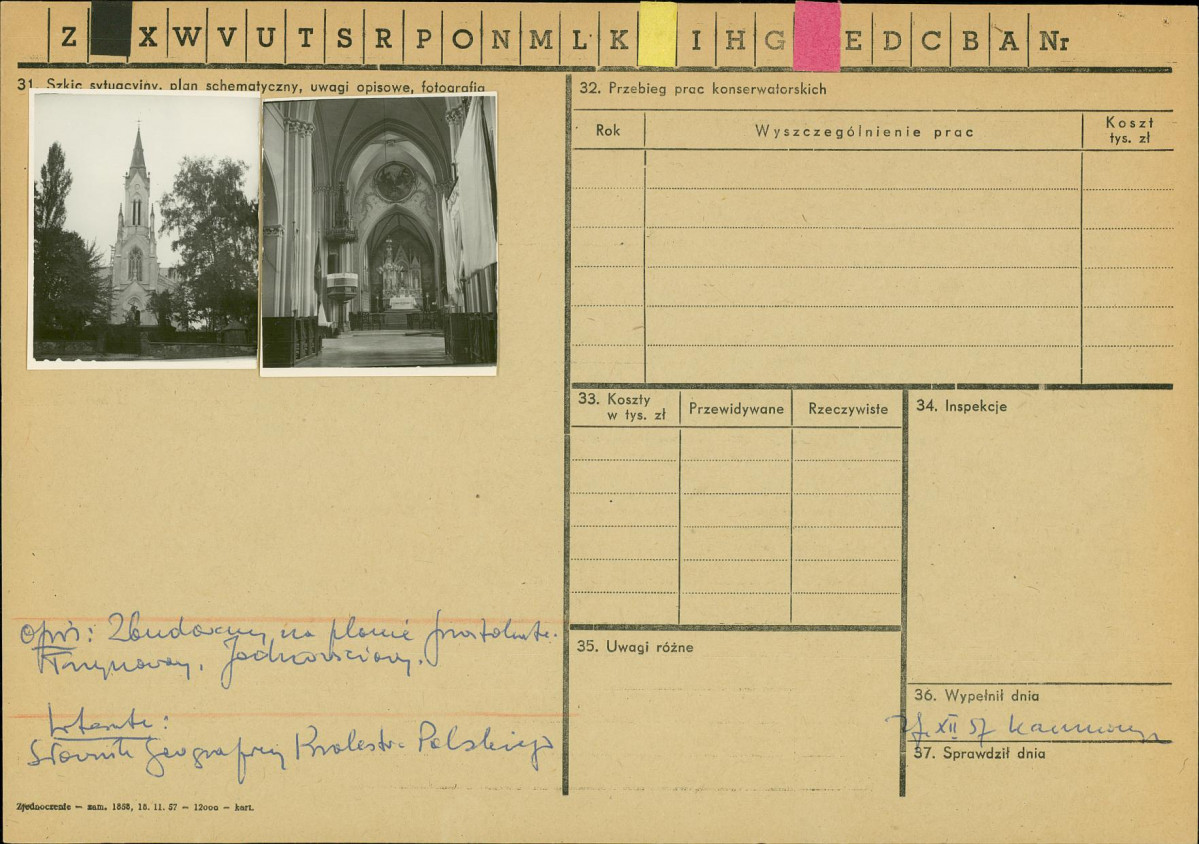 Z X W V U T S R P O N M L K I H G E D C B A Nr
31. Szkic sytuacyjny, plan schematyczny, uwagi opisowe, fotografia
opis: Zbudowany na planie prostokąta.
Jednonawowy.
Literatura:
Słownik Geograficzny Królestwa Polskiego
Zjednoczenie — zam. 1858, 15. 11. 57 — 12000 — kart.
32. Przebieg prac konserwatorskich
Rok Wyszczególnienie prac Koszt
tys. zł
33. Koszty
w tys. zł
Przewidywane Rzeczywiste
34. Inspekcje
35. Uwagi różne
36. Wypełnił dnia
XII 57
37. Sprawdził dnia